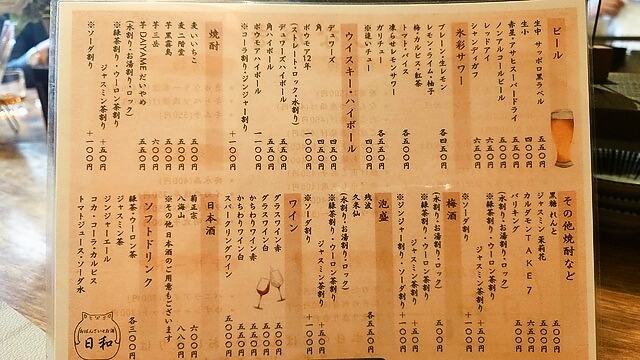 ビール
生中 サッポロ黒ラベル 五五〇円
生小 四〇〇円
赤星・アサヒスーパードライ
ノンアルコールビール
レッドアイ
シャンディガフ 六五〇円
氷彩サワー
プレーン・生レモン
レモン・ライム・柚子
梅・カルピス・紅茶 各四五〇円
トマト・バイス
凍らせレモンサワー 各五五〇円
ガリチュー
※追いチュー
ウイスキー・ハイボール
デュワーズ 四五〇円
角 四五〇円
ボウモア12年
(ストレート・ロック・水割り)
デュワーズハイボール 五五〇円
角ハイボール 五五〇円
ボウモアハイボール 一一〇〇円
※コーラ割り・ジンジャー割り ＋一〇〇円
焼酎
麦 いいちこ
麦 二階堂
芋 黒霧島
芋 DAIYAME だいやめ
芋 三岳
(水割り・お湯割り・ロック)
※緑茶割り・ウーロン茶割り
ジャスミン茶割り ＋五〇円
※ソーダ割り ＋一〇〇円
その他焼酎など
黒糖 れんと
ジャスミン 茉莉花
カルダモン TAKE7
バリキング
(水割り・お湯割り・ロック)
※緑茶割り・ウーロン茶割り
ジャスミン茶割り ＋五〇円
※ソーダ割り ＋一〇〇円
梅酒 五〇〇円
(水割り・お湯割り・ロック)
※緑茶割り・ウーロン茶割り
ジャスミン茶割り ＋五〇円
※ジンジャー割り・ソーダ割り ＋一〇〇円
泡盛
残波
久米仙 各五五〇円
(水割り・お湯割り・ロック)
※緑茶割り・ウーロン茶割り
ジャスミン茶割り ＋五〇円
※ソーダ割り ＋一〇〇円
ワイン
グラスワイン赤 五五〇円
グラスワイン白 五五〇円
かちわりワイン赤 五五〇円
かちわりワイン白 五五〇円
スパークリングワイン
日本酒
菊正宗 六〇〇円
八海山 八八〇円
※その他日本酒のご用意もございます
ソフトドリンク
緑茶・ウーロン茶
ジャスミン茶
ジンジャーエール
コカ・コーラ・カルピス
トマトジュース・ソーダ水 各三〇〇円
おばんざいとお酒
日和